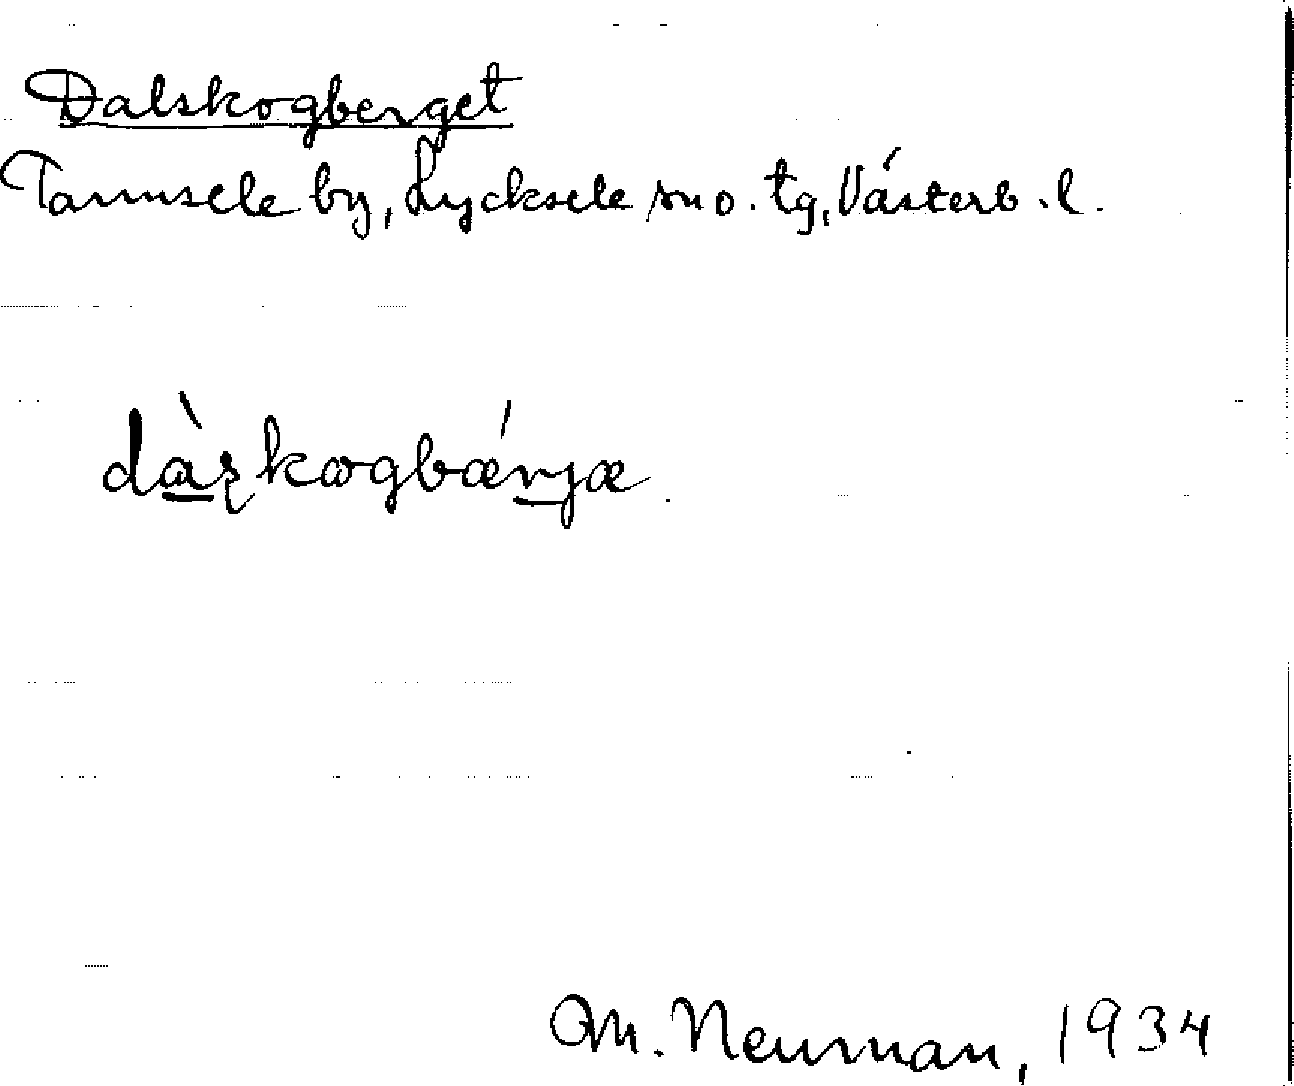 Dalskogberget
Tannsele by, Lycksele sn o. tg, Västerb. l.
dàʂkogbǽrjæ.
M. Neuman, 1934